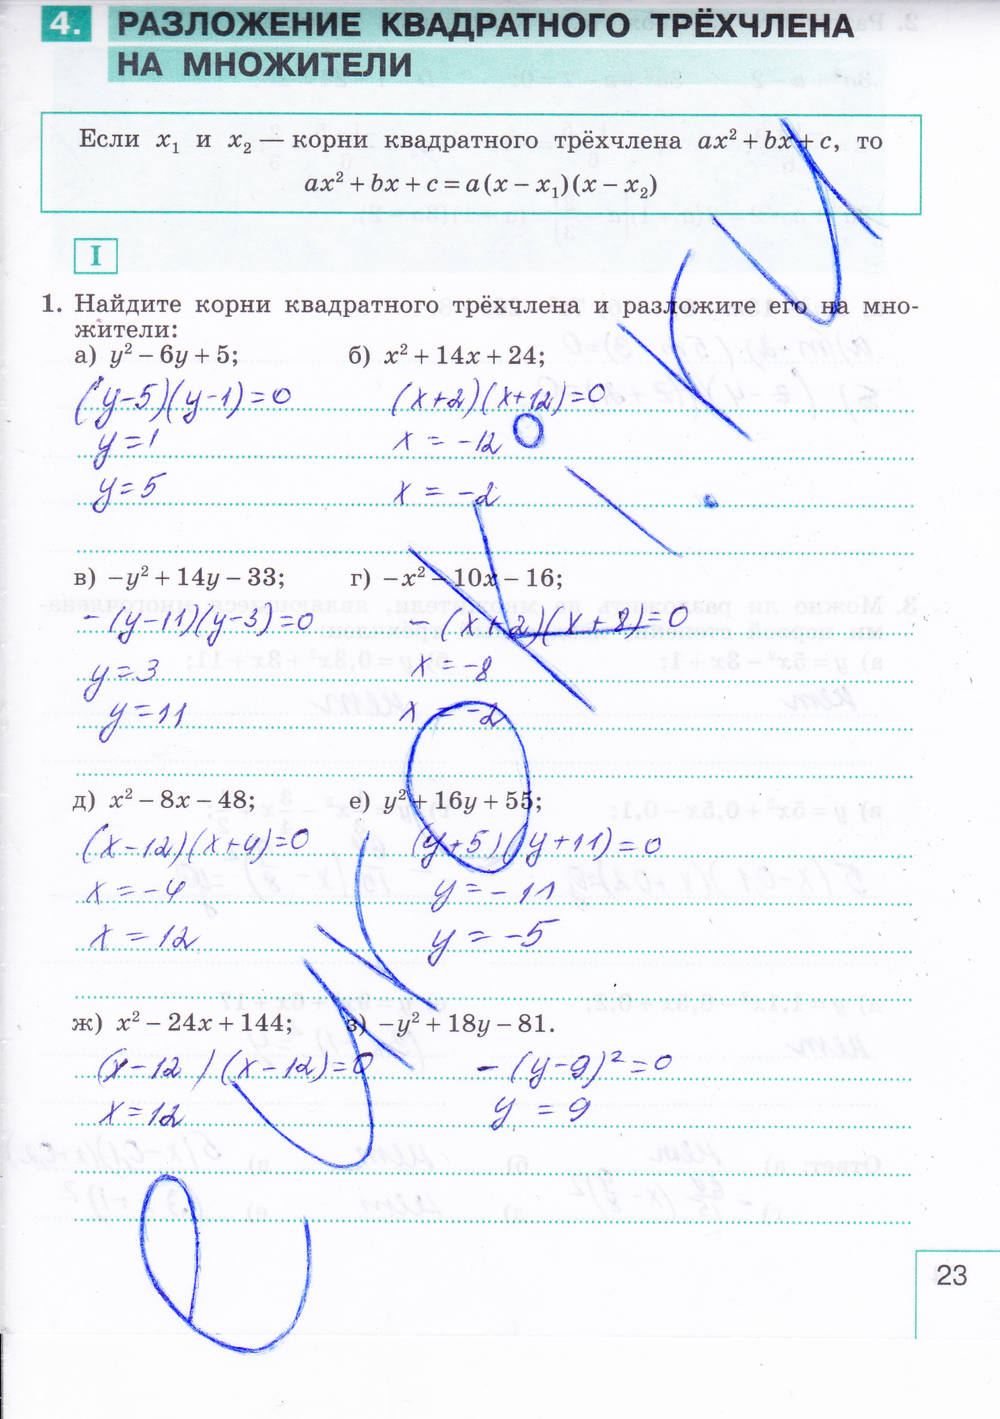 4. РАЗЛОЖЕНИЕ КВАДРАТНОГО ТРЁХЧЛЕНА
НА МНОЖИТЕЛИ
Если x₁ и x₂ — корни квадратного трёхчлена ax² + bx + c, то
ax² + bx + c = a(x – x₁)(x – x₂)
I
1. Найдите корни квадратного трёхчлена и разложите его на мно-
жители:
а) y² – 6y + 5; б) x² + 14x + 24;
(y-5)(y-1)=0 (x+2)(x+12)=0
y=1 x = -12
y=5 x = -2
в) –y² + 14y – 33; г) –x² – 10x – 16;
-(y-11)(y-3)=0 -(x+2)(x+8)=0
y=3 x=-8
y=11 x=-2
д) x² – 8x – 48; е) y² + 16y + 55;
(x-12)(x+4)=0 (y+5)(y+11)=0
x=-4 y=-11
x=12 y=-5
ж) x² – 24x + 144; з) –y² + 18y – 81.
(x-12)(x-12)=0 -(y-9)²=0
x=12 y=9
23